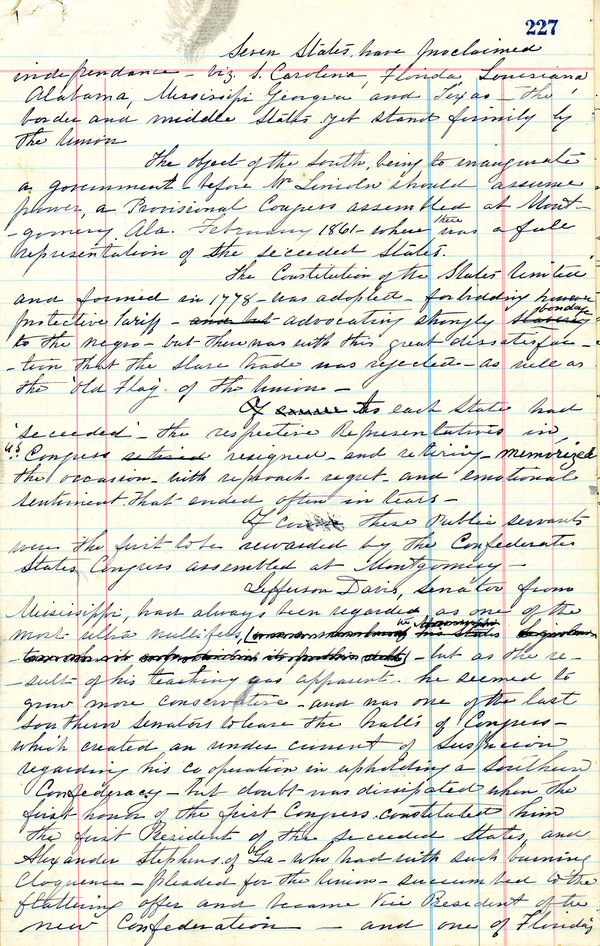 227
Seven States have proclaimed
independance - viz S. Carolina, Florida, Louisiana
Alabama, Mississipi Georgia and Texas - The
border and middle States yet stand firmly by
the Union
The object of the South, being to inaugurate
a government before Mr Lincoln should assume
power, a Provisional Congress assembled at Mont-
-gomery Ala. February 1861 - where there was a full
representation of the seceeded States.
The Constitution of the States United
and formed in 1778 - was adopted - forbidding however
protective Tariff - and but advocating strongly slavery bondage
to the negro - but there was with this great dissatisfac-
-tion that the slave trade was rejected - as well as
the 'old Flag' of the Union -
Of course As each State had
'seceeded' - the respective Representatives in
U.S. Congress retired resigned - and retiring - memorized
the occasion - with reproach - regret - and emotional
sentiment that ended often in tears -
Of course these Public servants
were the first to be rewarded by the Confederate
States Congress assembled at Montgomery -
Jefferson Davis, Senator from
Mississippi, had always been regarded as one of the
most ultra nullifiers, his State - but as the re-
-sult of his teaching was apparent - he seemed to
grow more conservative - and was one of the last
Southern Senators to leave the Halls of Congress -
which created an under current of Suspicion
regarding his co operation in upholding a Southern
Confedracy - but doubt was dissipated when the
first honor of the first Congress constituted him
the first President of the seceeded States, and
Alexander Stephens of Ga - who had with such burning
Eloquence - pleaded for the Union - succumbed to the
flattering offer and became Vice President of the
new Confederation - and one of Florida's